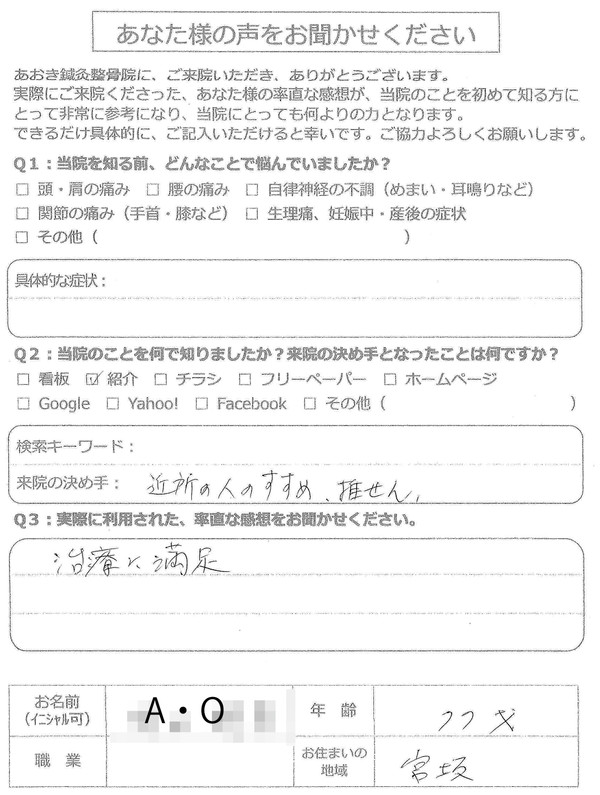 あなた様の声をお聞かせください
あおき鍼灸整骨院に、ご来院いただき、ありがとうございます。
実際にご来院くださった、あなた様の率直な感想が、当院のことを初めて知る方に
とって非常に参考になり、当院にとっても何よりの力となります。
できるだけ具体的に、ご記入いただけると幸いです。ご協力よろしくお願いします。
Q1：当院を知る前、どんなことで悩んでいましたか？
□ 頭・肩の痛み □ 腰の痛み □ 自律神経の不調（めまい・耳鳴りなど）
□ 関節の痛み（手首・膝など） □ 生理痛、妊娠中・産後の症状
□ その他（ ）
具体的な症状：
Q2：当院のことを何で知りましたか？来院の決め手となったことは何ですか？
□ 看板 ☑ 紹介 □ チラシ □ フリーペーパー □ ホームページ
□ Google □ Yahoo! □ Facebook □ その他（ ）
検索キーワード：
来院の決め手： 近所の人のすすめ、推せん、
Q3：実際に利用された、率直な感想をお聞かせください。
治療に満足
お名前 A・O 年 齢 77才
（イニシャル可）
職 業 お住まいの 宮坂
地域